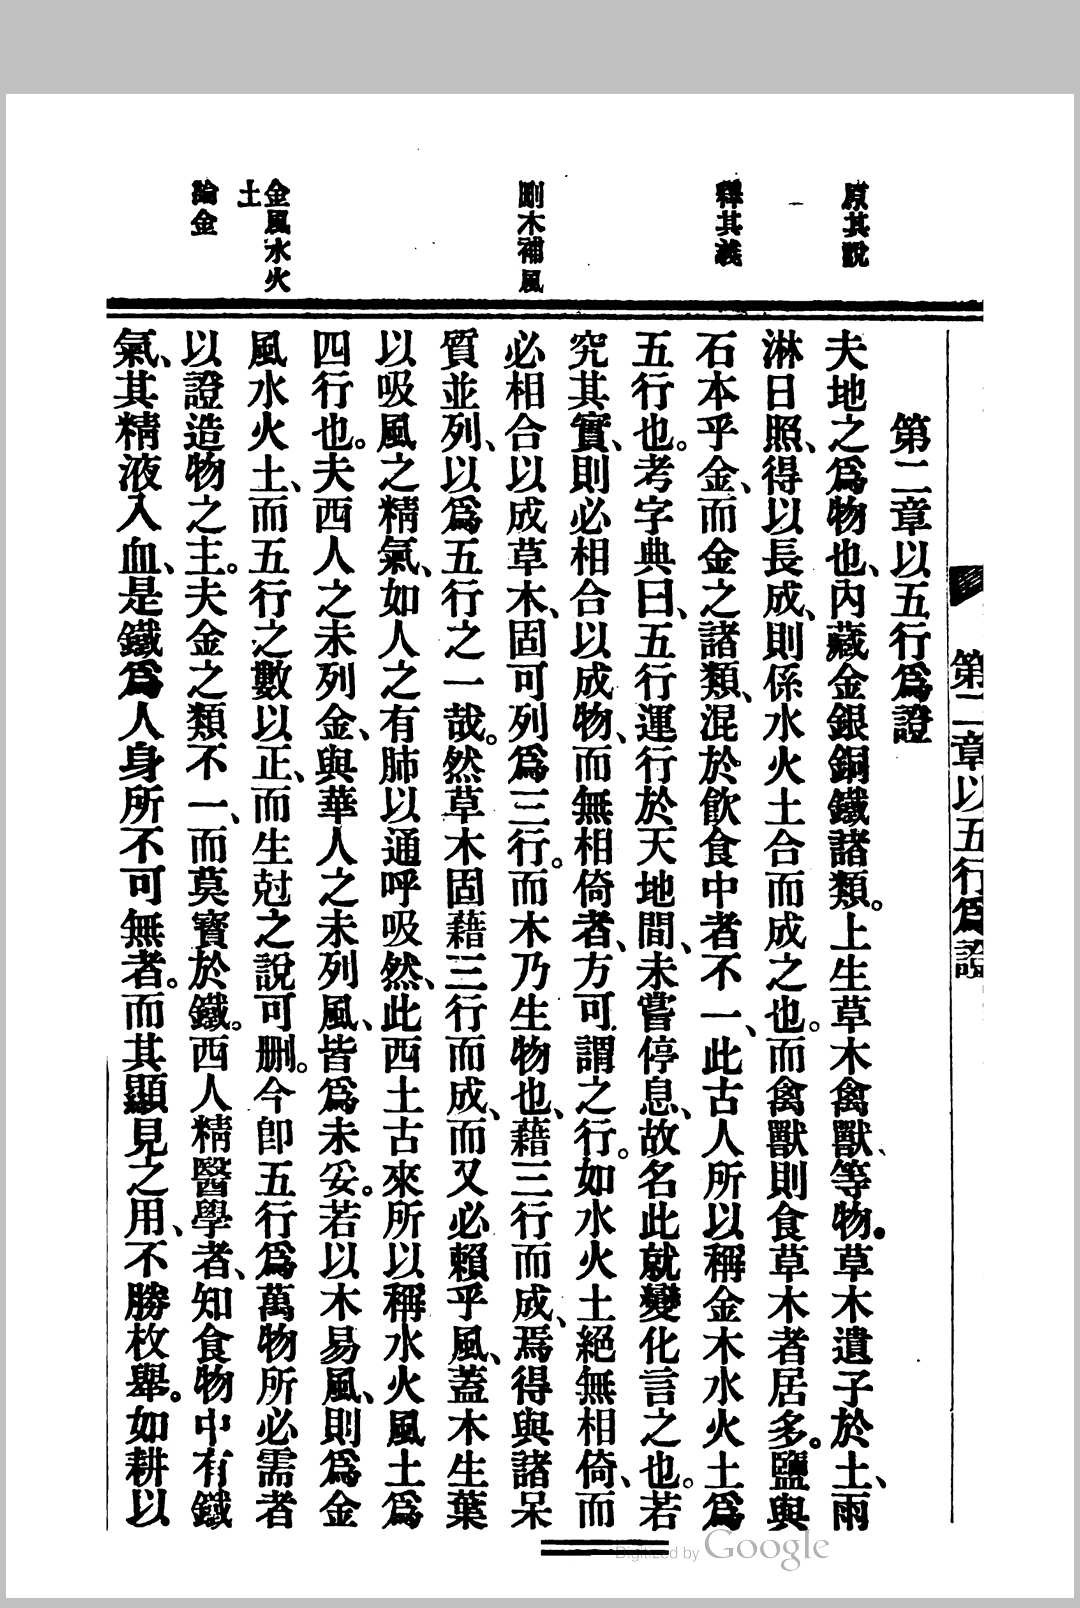 第二章以五行爲證
第二章以五行爲證
原其說
釋其義
剛木補風
金風水火
土
論金
夫地之爲物也、內藏金銀銅鐵諸類。上生草木禽獸、等物。草木遺子於土、雨
淋日照、得以長成、則係水火土合而成之也。而禽獸則食草木者居多。鹽與
石本乎金、而金之諸類、混於飮食中者不一、此古人所以稱金木水火土爲
五行也。考字典曰、五行運行於天地間、未嘗停息、故名此就變化言之也。若
究其實、則必相合以成物、而無相倚者、方可謂之行。如水火土絕無相倚、而
必相合以成草木、固可列爲三行。而木乃生物也、藉三行而成、焉得與諸呆
質並列、以爲五行之一哉。然草木固藉三行而成、而又必賴乎風、蓋木生葉
以吸風之精氣、如人之有肺以通呼吸然、此西土古來所以稱水火風土爲
四行也。夫西人之未列金、與華人之未列風、皆爲未妥。若以木易風、則爲金
風水火土、而五行之數以正、而生尅之說可删。今卽五行爲萬物所必需者
以證造物之主。夫金之類不一、而莫寳於鐵。西人精醫學者、知食物中有鐵
氣、其精液入血、是鐵爲人身所不可無者。而其顯見之用、不勝枚舉。如耕以
Digitized by Google